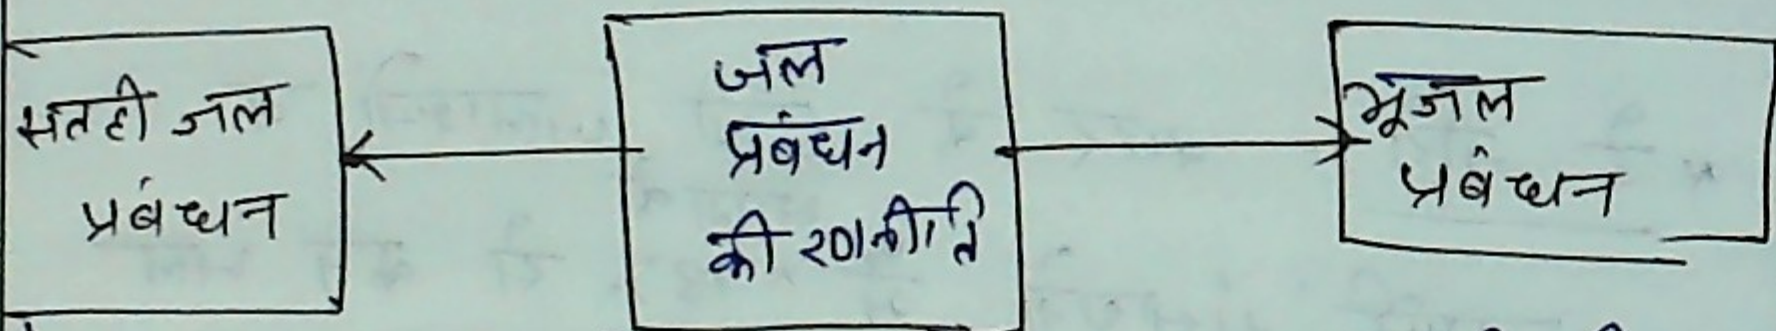 सतही जल
प्रबंधन
जल
प्रबंधन
की रणनीति
भूजल
प्रबंधन